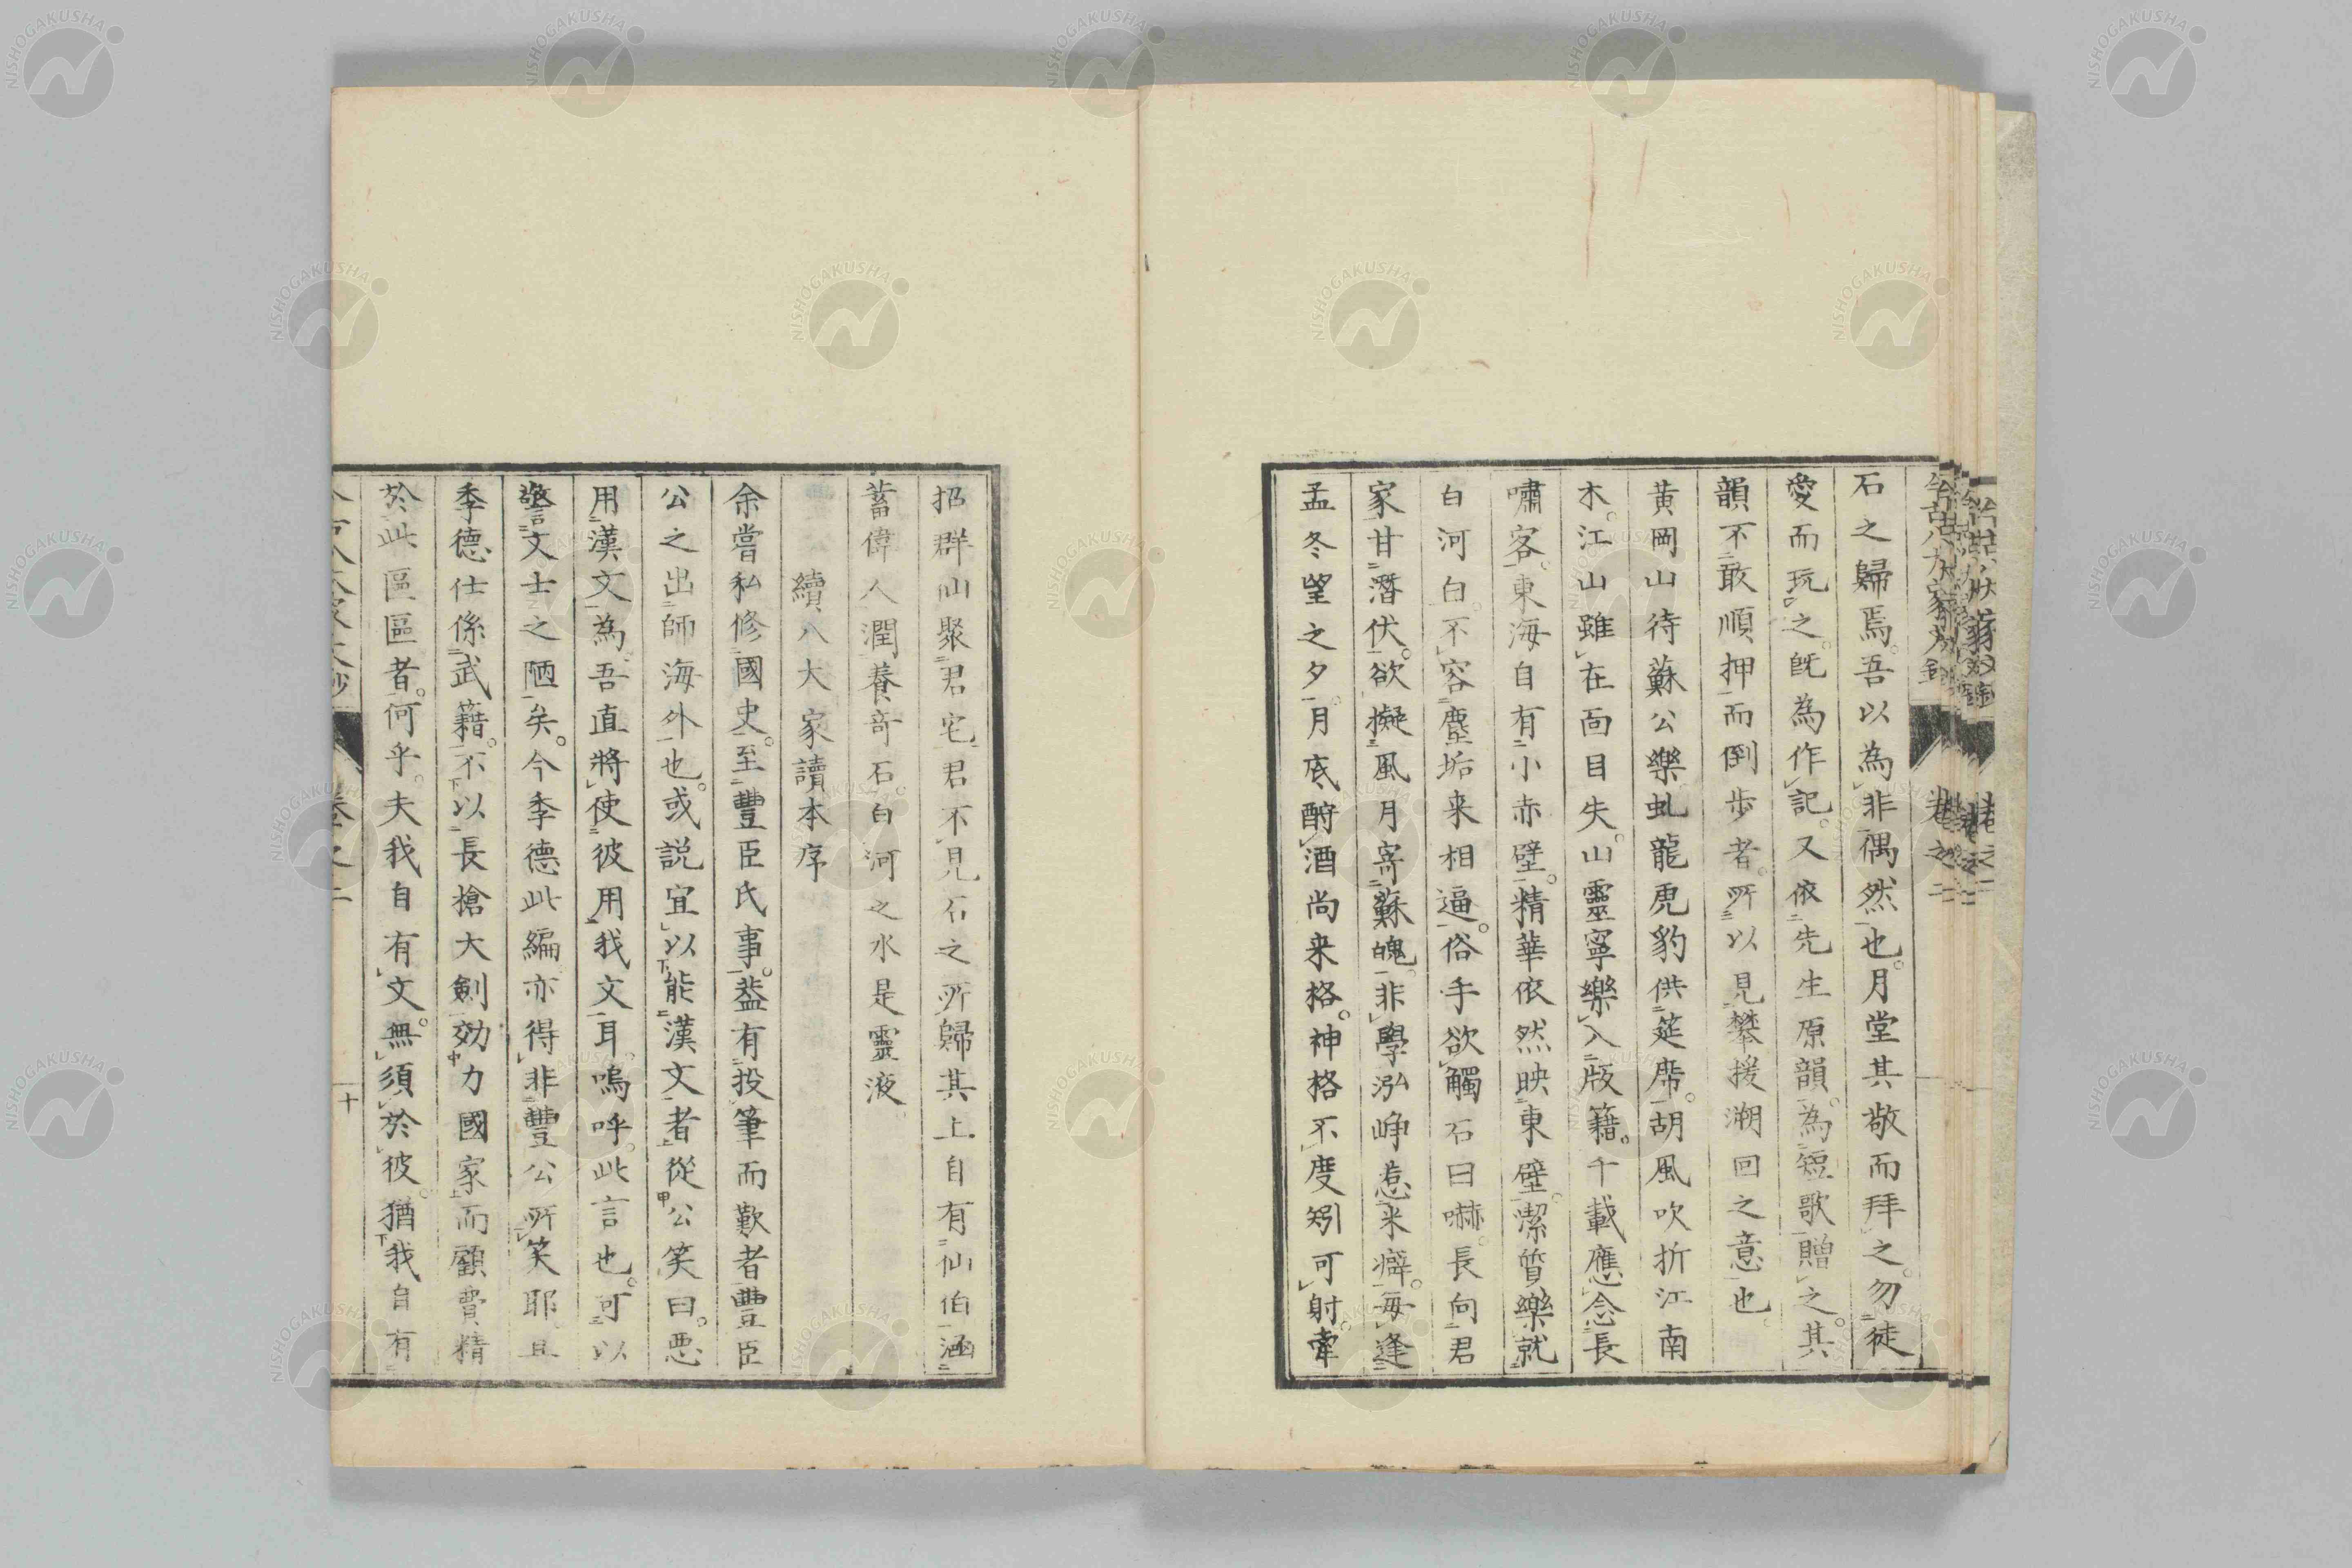 石之歸焉。吾以為非偶然也。月堂其敬而拜之。勿徒
愛而玩之。既為作記。又依先生原韻。為短歌贈之。其
韻不敢順押而倒步者。所以見攀援溯回之意也。
黄岡山待蘇公樂。虬龍虎豹供筵席。胡風吹折江南
木。江山雖在面目失。山靈寧樂入版籍。千載應念長
嘯客。東海自有小赤壁。精華依然映東壁。潔質樂就
白河白。不容塵垢来相逼。俗手欲觸石曰嚇。長向君
家甘潛伏。欲擬風月寄蘇魄。非學泓崢惹米癖。每逢
孟冬望之夕。月底酹酒尚来格。神格不度矧可射。牽
招群仙聚君宅。君不見石之所歸其上自有仙伯涵
蓄偉人潤養奇石白河之水是靈液
續八大家讀本序
余嘗私修國史。至豐臣氏事。葢有投筆而歎者。豐臣
公之出師海外也。或説宜以能漢文者從。公笑曰。惡
用漢文為。吾直將使彼用我文耳。嗚呼。此言也。可以
警文士之陋矣。今季德此編亦得非豐公所笑耶。且
季德仕係武籍。不以長槍大劍効力國家。而顧費精
於此區區者。何乎。夫我自有文。無須於彼。猶我自有
卷之二
十
卷之二
NISHOGAKUSHA